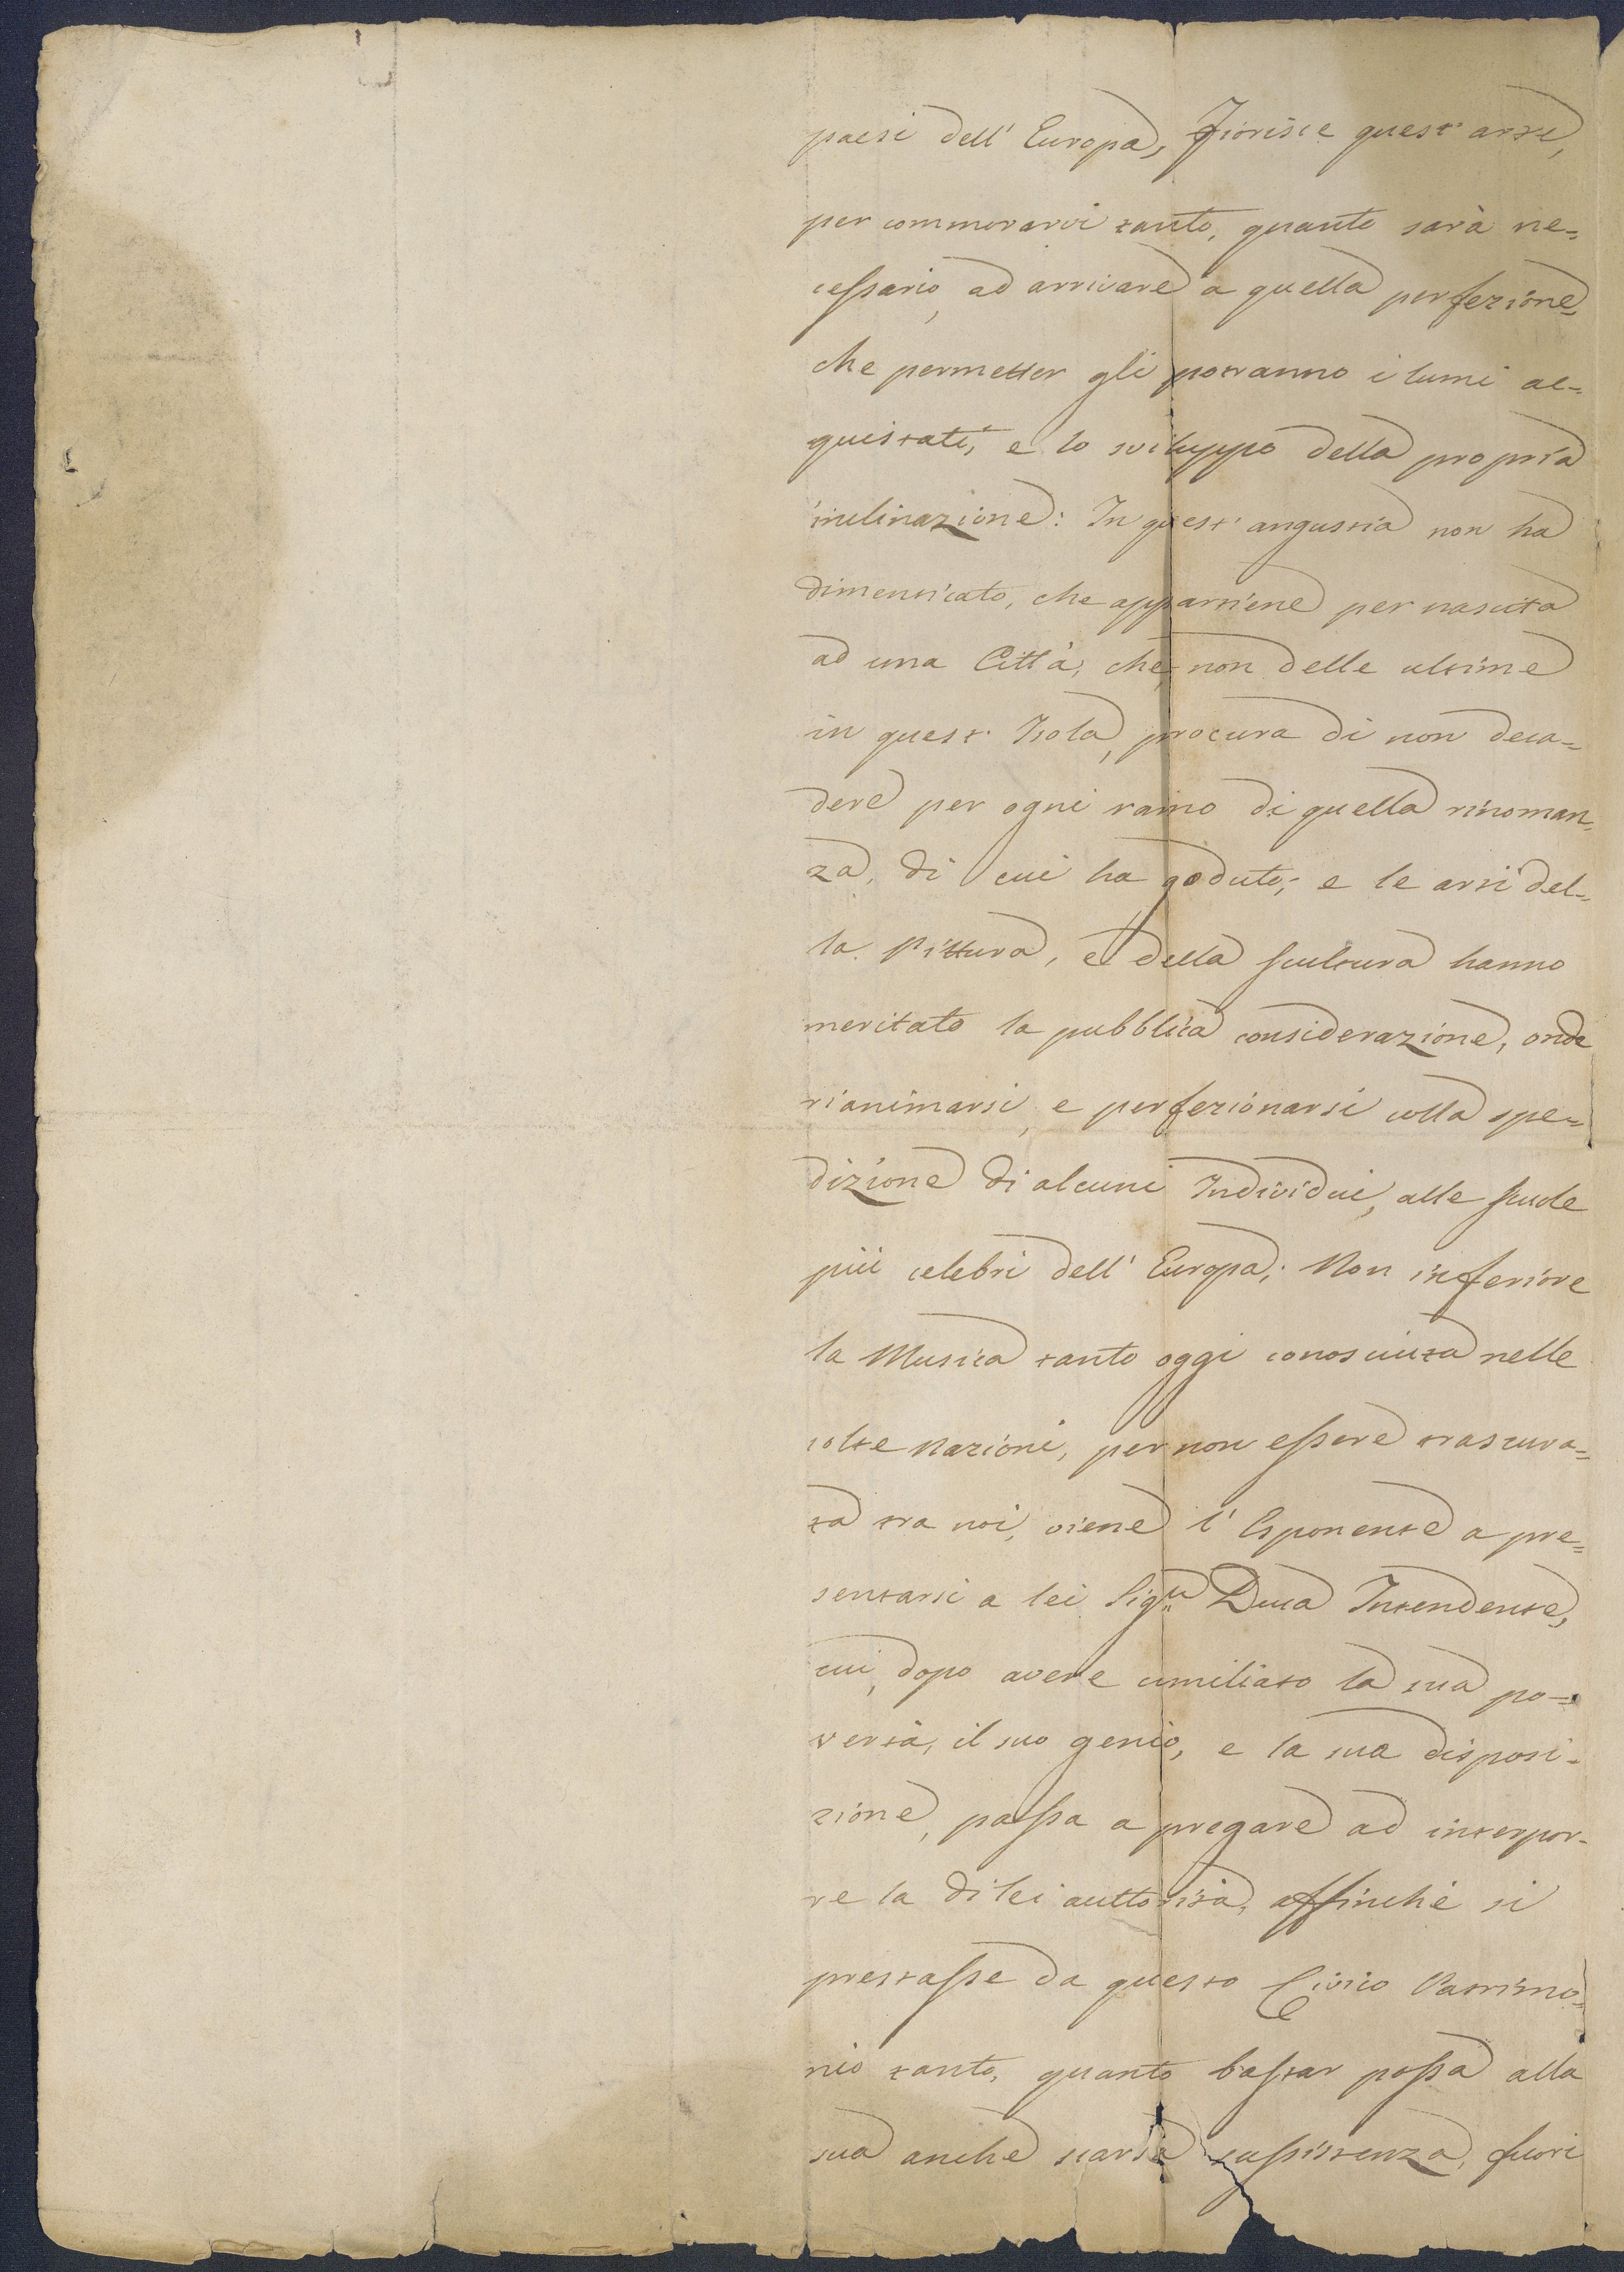 paesi dell' Europa, fiorisce quest' arte,
per commorarvi tanto, quanto sarà ne=
cessario, ad arrivare a quella perfezione,
che permetter gli potranno i lumi ac=
quistati, e lo sviluppo della propria
inclinazione: In quest' angustia non ha
dimenticato, che appartiene per nascita
ad una Città, che non delle ultime
in quest' Isola, procura di non deca=
dere per ogni ramo di quella rinoman=
za, di cui ha goduto; e le arti del=
la Pittura, e della Scultura hanno
meritato la pubblica considerazione, onde
rianimarsi, e perfezionarsi colla spe=
dizione di alcuni Individui, alle scuole
più celebri dell' Europa; Non inferiore
la Musica tanto oggi conosciuta nelle
colte Nazioni, per non essere trascura=
ta tra noi, viene l' Esponente a pre=
sentarsi a lei Sig.r Duca Intendente,
cui, dopo avere umiliato la sua po=
vertà, il suo genio, e la sua disposi=
zione, passa a pregare ad interpor=
re la di lei auttorità, affinchè si
prestasse da questo Civico Patrimo=
nio tanto, quanto bastar possa alla
sua anche scarsa sussistenza, fuori